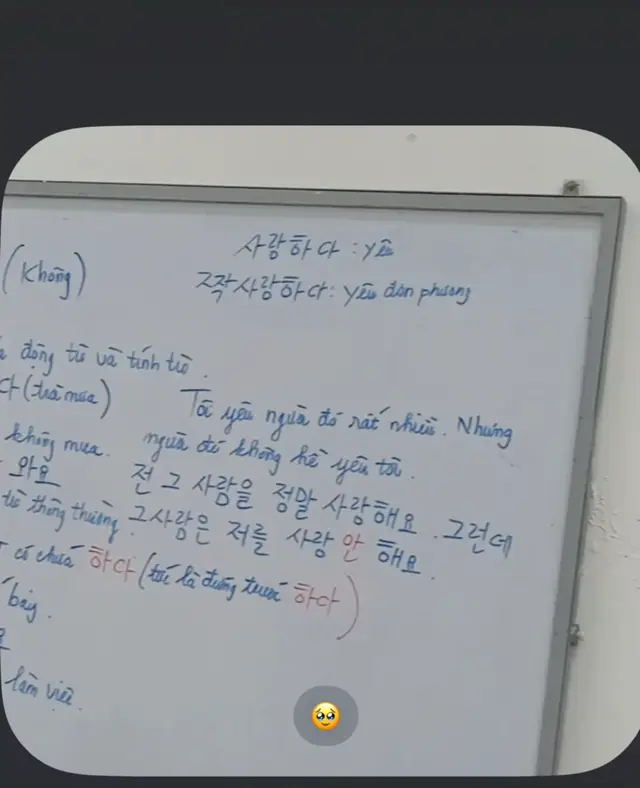 사랑하다 : yêu
(Không)
짝사랑하다: yêu đơn phương
động từ và tính từ.
다 (trời mưa)
Tôi yêu người đó rất nhiều. Nhưng
không mưa. người đó không hề yêu tôi.
와요 전 그 사람을 정말 사랑해요. 그런데
từ thông thường. 그 사람은 저를 사랑 안 해요.
có chứa 하다 (tức là đứng trước 하다)
bay.
làm việc.